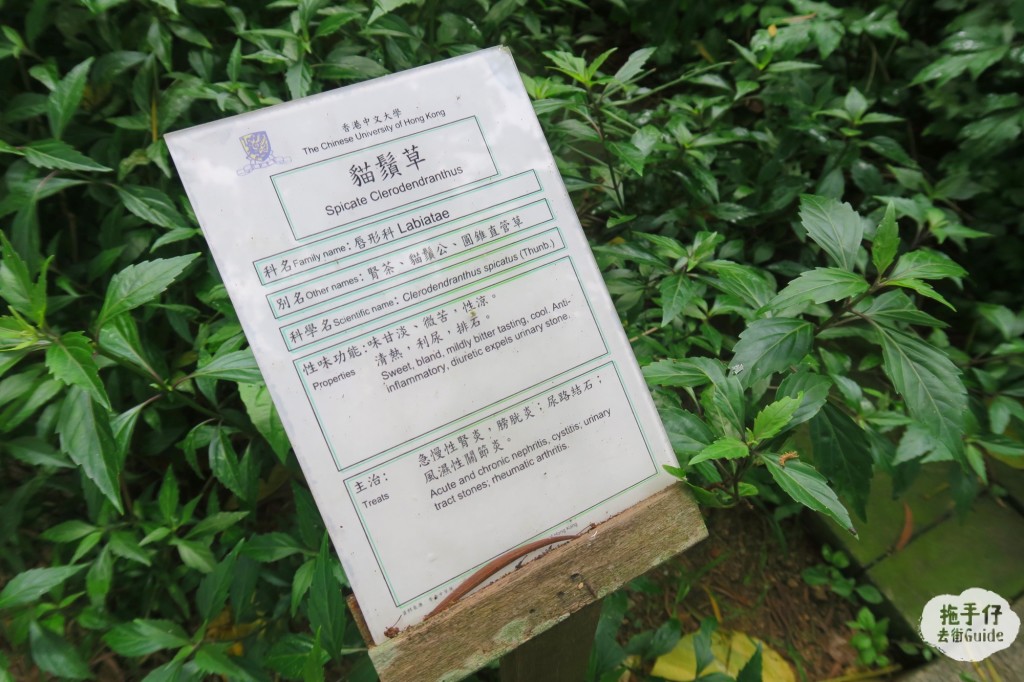 香港中文大學
The Chinese University of Hong Kong
貓鬚草
Spicate Clerodendranthus
科名Family name：唇形科 Labiatae
別名Other names：腎茶、貓鬚公、圓錐直管草
科學名Scientific name：Clerodendranthus spicatus (Thunb.)
性味功能：味甘淡、微苦，性涼。
清熱，利尿，排石。
Properties
Sweet, bland, mildly bitter tasting, cool. Anti-
inflammatory, diuretic expels urinary stone.
主治：
急慢性腎炎，膀胱炎；尿路結石；
風濕性關節炎。
Treats
Acute and chronic nephritis, cystitis; urinary
tract stones; rheumatic arthritis.
拖手仔
去街Guide